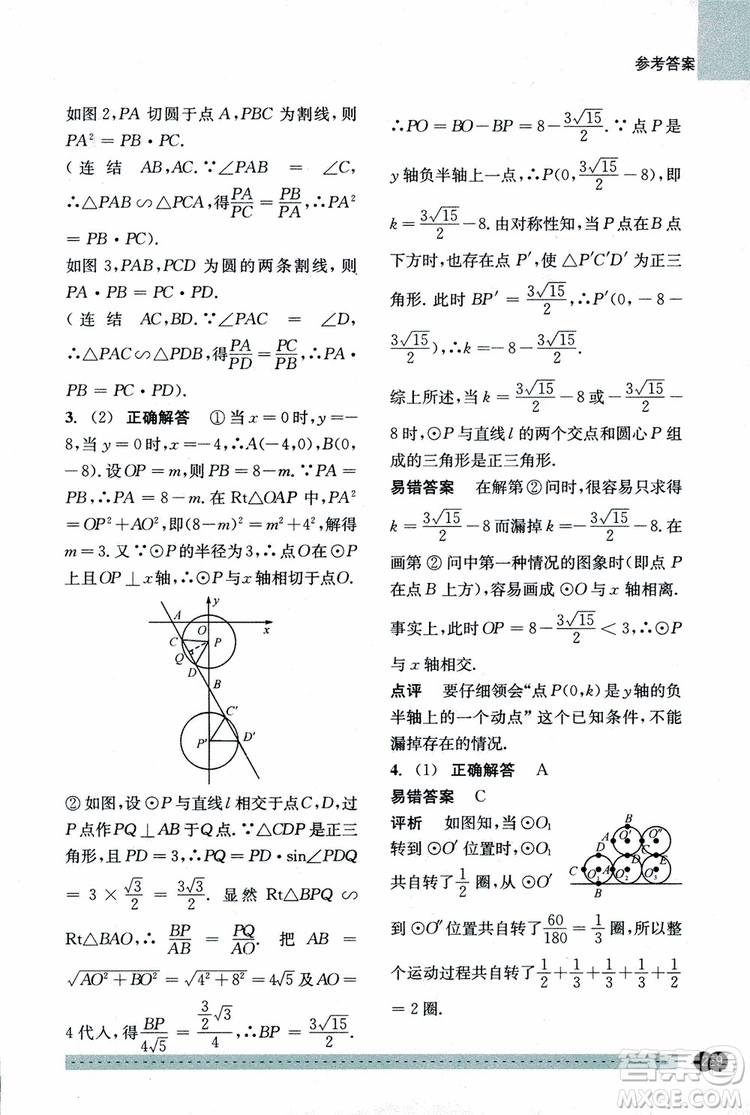 参考答案
如图2,PA 切圆于点A,PBC 为割线,则
PA² = PB·PC.
(连结 AB,AC.∵∠PAB = ∠C,
∴△PAB∽△PCA,得PA/PC = PB/PA,∴PA²
= PB·PC).
如图3,PAB,PCD 为圆的两条割线,则
PA·PB = PC·PD.
(连结 AC,BD.∵∠PAC = ∠D,
∴△PAC∽△PDB,得PA/PD = PC/PB,∴PA·
PB = PC·PD).
3. (2) 正确解答 ①当x = 0时,y =-
8,当y = 0时,x =-4,∴A(-4,0),B(0,
-8).设OP = m,则PB = 8-m.∵PA =
PB,∴PA = 8-m.在Rt△OAP中,PA²
= OP²+AO²,即(8-m)² = m²+4²,解得
m = 3.又∵⊙P的半径为3,∴点O在⊙P
上且OP⊥x轴,∴⊙P与x轴相切于点O.
y
A
O
x
C
P
Q
D
B
C′
P′
D′
②如图,设⊙P与直线l相交于点C,D,过
P点作PQ⊥AB于Q点.∵△CDP是正三
角形,且PD = 3,∴PQ = PD·sin∠PDQ
= 3×√3/2 = 3√3/2. 显然 Rt△BPQ∽
Rt△BAO,∴BP/AB = PQ/AO. 把 AB =
√AO²+BO² = √4²+8² = 4√5及AO =
4代入,得BP/4√5 = 3/2√3/4,∴BP = 3√15/2.
∴PO = BO-BP = 8-3√15/2.∵点P是
y轴负半轴上一点,∴P(0,3√15/2-8),即
k = 3√15/2-8.由对称性知,当P点在B点
下方时,也存在点P′,使△P′C′D′为正三
角形. 此时 BP′ = 3√15/2,∴P′(0,-8-
3√15/2),∴k =-8-3√15/2.
综上所述,当k = 3√15/2-8或-3√15/2-
8时,⊙P与直线l的两个交点和圆心P组
成的三角形是正三角形.
易错答案 在解第②问时,很容易只求得
k = 3√15/2-8而漏掉k =-3√15/2-8. 在
画第②问中第一种情况的图象时(即点P
在点B上方),容易画成⊙O与x轴相离.
事实上,此时OP = 8-3√15/2 < 3,∴⊙P
与x轴相交.
点评 要仔细领会“点P(0,k)是y轴的负
半轴上的一个动点”这个已知条件,不能
漏掉存在的情况.
4. (1) 正确解答 A
易错答案 C
评析 如图知,当⊙O₁
转到⊙O′位置时,⊙O₁
共自转了1/2圈,从⊙O′
B
A O′ C O″
D D E
C O₁ A O₂ O₃
B
到⊙O″位置共自转了60/180 = 1/3圈,所以整
个运动过程共自转了1/2+1/3+1/3+1/3+1/2
= 2圈.
答案圈
MXQE.COM